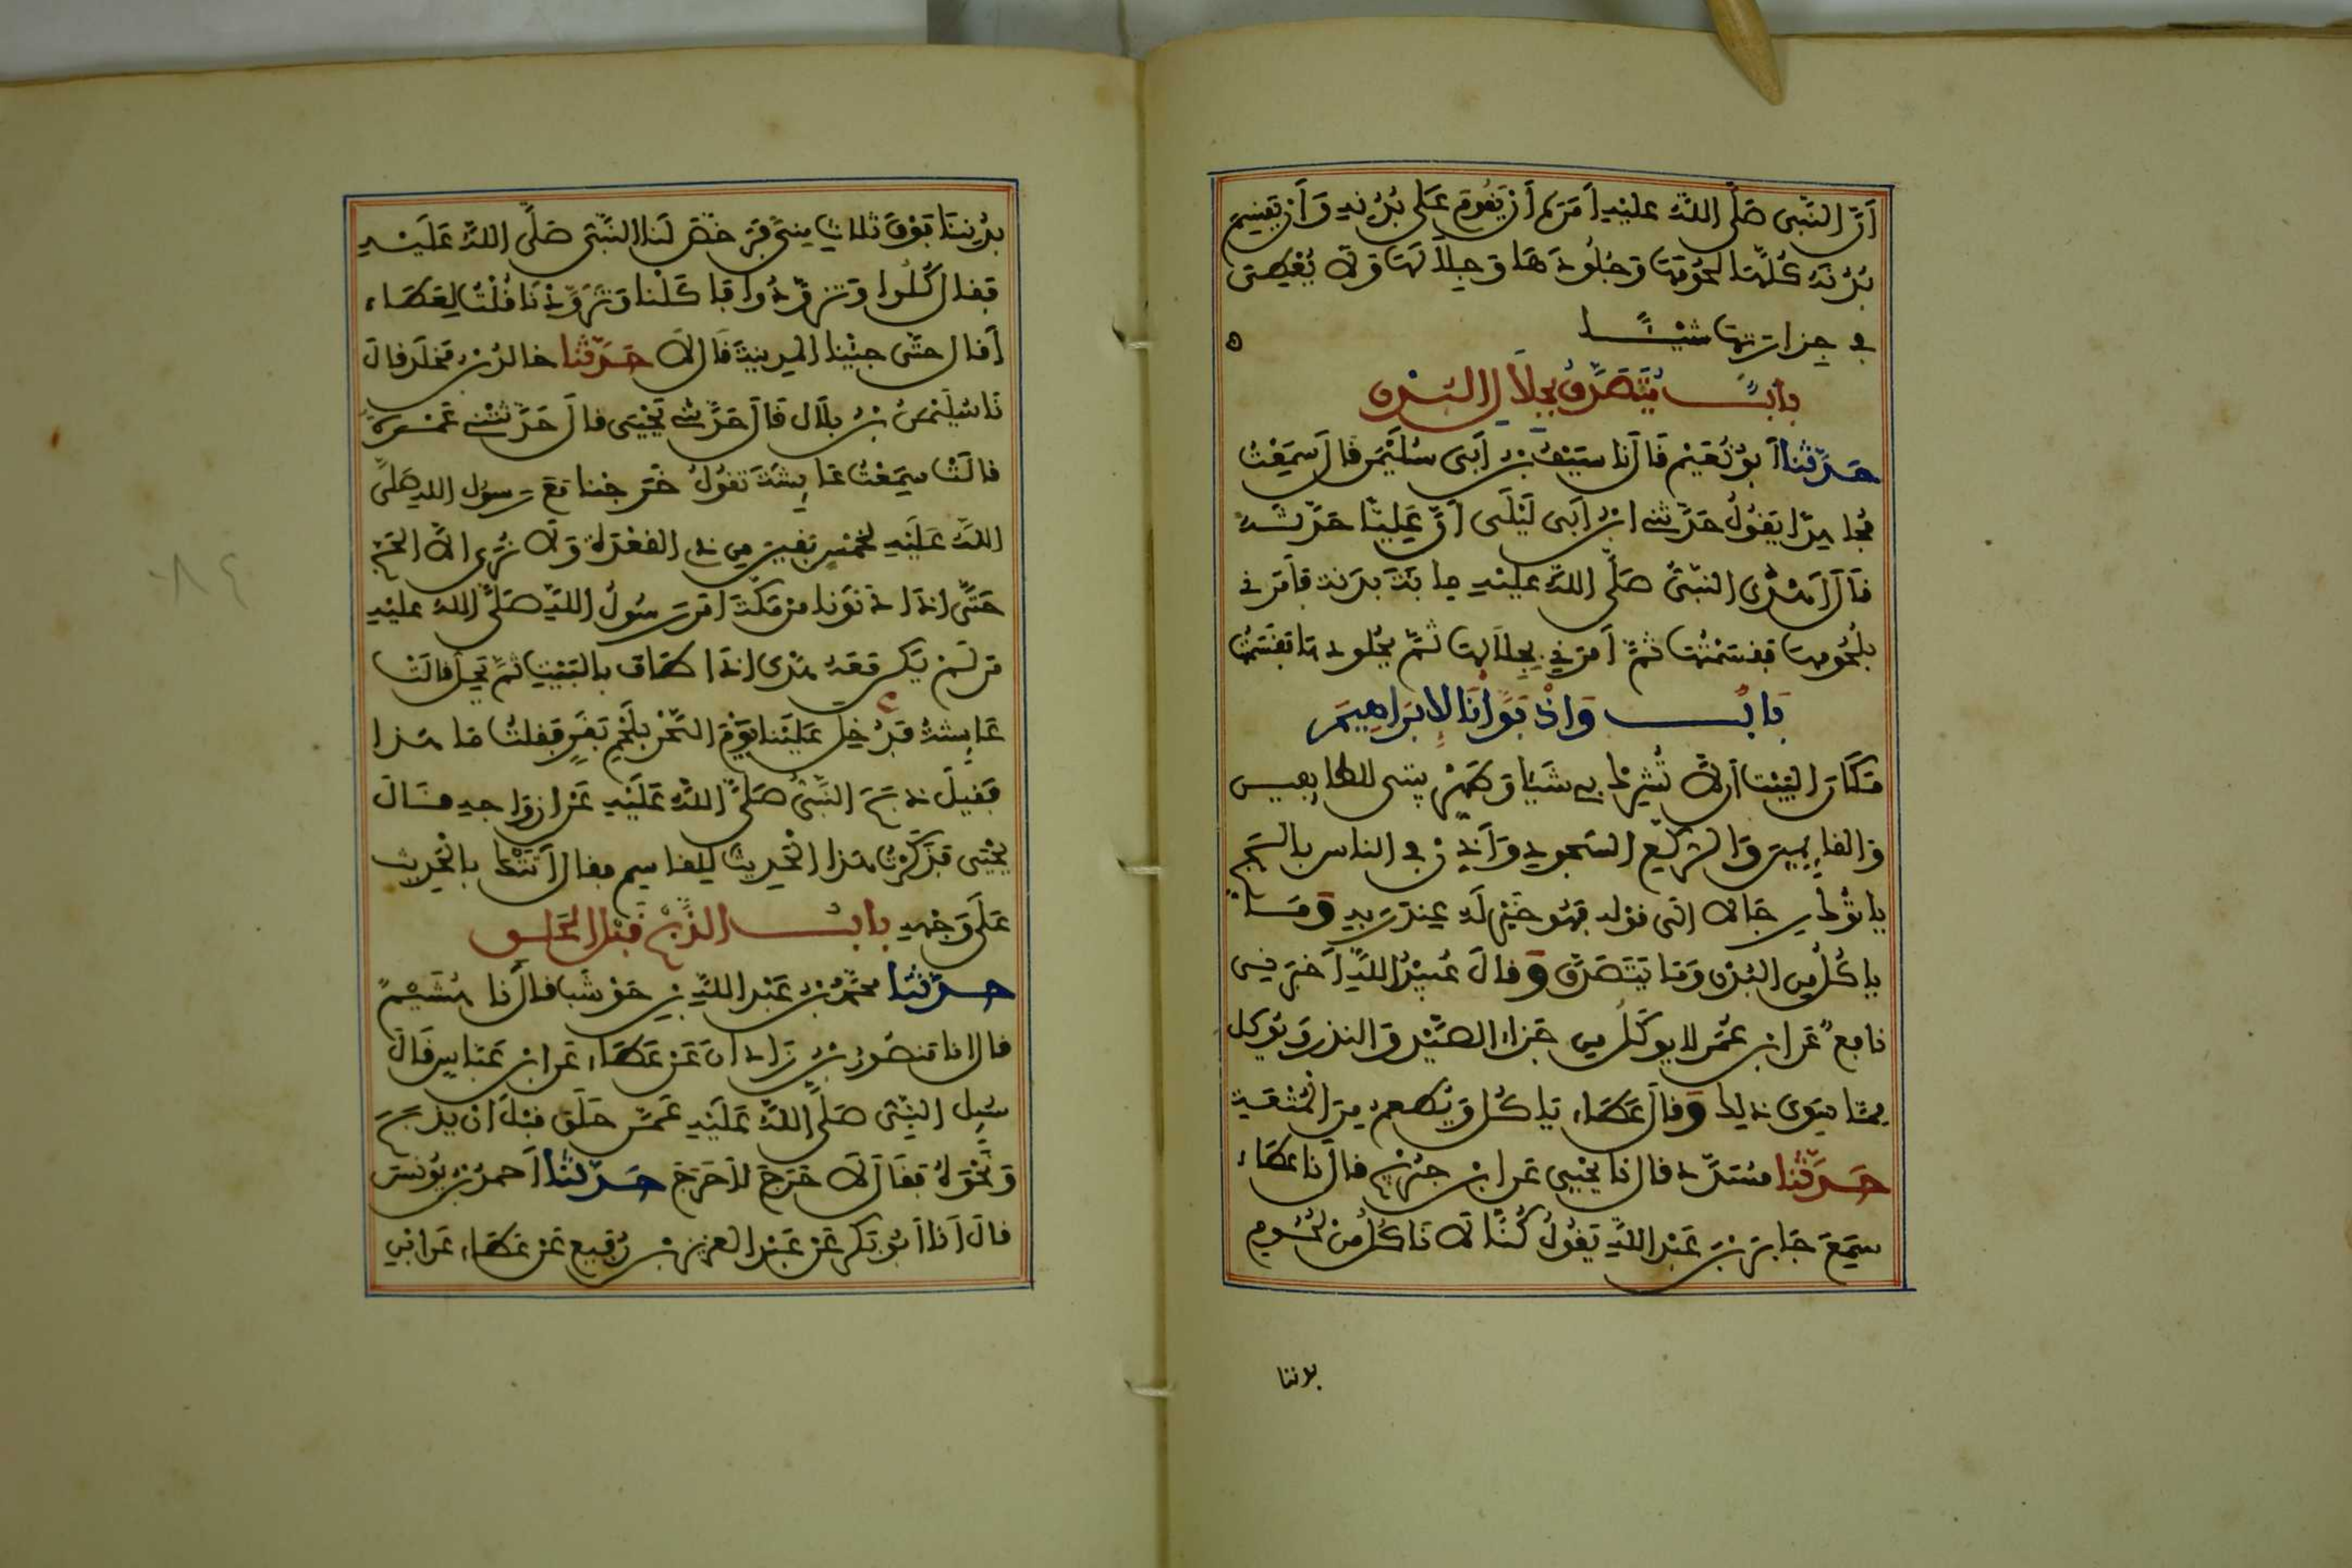 أَنَّ النَّبِى صَلَّى اللَّهُ عليْهِ أمَرَهُ أَنْ يَقُومَ عَلَى بُدْنِهِ وَأَنْ يَقْسِمَ
بُدْنَهُ كُلَّهَا لُحُومَهَا وَجُلُودَهَا وَجِلَالَهَا وَلَا يُعْطِىَ
فِى جِزَارَتِهَا شَيْـًٔا ه
بابٌ يُتَصَدَّقُ بِجِلَالِ الْبُدْنِ
حَدَّثَنَا أَبُو نُعَيْمٍ قَالَ نا سَيْفُ بْنُ أَبِى سُلَيْمَن قالَ سَمِعْتُ
مُجاهِدًا يَقُولُ حَدَّثَنِى ابْنُ أَبِى لَيْلَى أَنَّ عَلِيًّا حَدَّثَهُ
قَالَ أَهْدَى النَّبِىُّ صَلَّى اللَّهُ عليْهِ مِائَةَ بَدَنَةٍ فَأَمَرَنِى
بِلُحُومِهَا فَقَسَمْتُهَا ثُمَّ أَمَرَنِى بِجِلَالِهَا ثُمَّ بِجُلُودِهَا فَقَسَمْتُهَا
بَابٌ وَإِذْ بَوَّأْنَا لِإِبْرَاهِيمَ
مَكَانَ الْبَيْتِ أَن لَّا تُشْرِكْ بِى شَيْئًا وَطَهِّرْ بَيْتِى لِلطَّائِفِينَ
وَالقائِمِينَ وَالرُّكَّعِ السُّجُودِ وَأَذِّنْ فِى الناسِ بِالْحَجِّ
يَاتُوكَ رِجَالًا الى قوله فَهُوَ خَيْرٌ لَهُ عِنْدَ رَبِّهِ وَمَا
يَاكُلُ مِنَ الْبُدْنِ وَمَا يَتَصَدَّقُ وَقالَ عُبَيْدُ اللَّهِ أَخْبَرَنِى
نافِعٌ عَنِ ابْنِ عُمَرَ لا يُوكَلُ مِن جَزاءِ الصَّيْدِ وَالنذرِ وَيُوكَلُ
مِمَّا سِوَى ذَلِكَ وَقالَ عَطَاءٌ يَاكُلُ وَيُطْعِمُ مِنَ الْمُتْعَةِ
حَدَّثَنَا مُسَدَّدٌ قال نا يَحْيَى عَنِ ابْنِ جُرَيْجٍ قال نا عَطَاءٌ
سَمِعَ جَابِرَ بْنَ عَبْدِ اللَّهِ يَقُولُ كُنَّا لَا نَاكُلُ مِنْ لُحُومِ
بدننا
بُدْنِنَا فَوْقَ ثَلَاثِ مِنًى فَرَخَّصَ لَنَا النَّبِىُّ صَلَّى اللَّهُ عَلَيْهِ
فَقالَ كُلُوا وَتَزَوَّدُوا فَأَكَلْنَا وَتَزَوَّدْنَا قُلْتُ لِعَطَاءٍ
أَقَالَ حَتَّى جِئْنَا الْمَدِينَةَ قَالَ لَا حَدَّثَنَا خَالِدُ بْنُ مَخْلَدٍ قالَ
نَا سُلَيْمَنُ بْنُ بِلَالٍ قَالَ حَدَّثَنِى يَحْيَى قالَ حَدَّثَتْنِى عَمْرَةُ
قالَتْ سَمِعْتُ عَائِشَةَ تَقُولُ خَرَجْنَا مَعَ رَسُولِ اللهِ صَلَّى
اللَّهُ عَلَيْهِ لِخَمْسٍ بَقِينَ مِن ذِى الْقَعْدَةِ وَلَا نُرَى إِلَّا الْحَجَّ
حَتَّى إِذَا دَنَوْنَا مِنْ مَكَّةَ أَمَرَ رَسُولُ اللَّهِ صَلَّى اللهُ عليْهِ
مَن لَّمْ يَكُن مَّعَهُ هَدْىٌ إِذَا طَافَ بِالْبَيْتِ ثُمَّ يَحِلُّ قالَتْ
عَائِشَةُ فَدُخِلَ عَلَيْنَا يَوْمَ النَّحْرِ بِلَحْمِ بَقَرٍ فَقُلْتُ مَا هَذَا
فَقِيلَ ذَبَحَ النَّبِىُّ صَلَّى اللَّهُ عَلَيْهِ عَنْ أزواجِهِ قَالَ
يَحْيَى فَذَكَرْتُ هَذَا الْحَدِيثَ لِلْقَاسِمِ فقالَ أَتَتْكَ بِالْحَدِيثِ
عَلَى وَجْهِهِ بابُ الذَّبْحِ قَبْلَ الْحَلْقِ
حَدَّثَنَا مُحَمَّدُ بْنُ عَبْدِ اللَّهِ بْنِ حَوْشَبٍ قالَ نا هُشَيْمٌ
قالَ انا مَنصُورُ بْنُ زَاذَانَ عَنْ عَطَاءٍ عَنِ ابْنِ عَبَّاسٍ قَالَ
سُئِلَ النَّبِىُّ صَلَّى اللَّهُ عَلَيْهِ عَمَّنْ حَلَقَ قَبْلَ أَنْ يَذْبَحَ
وَنَحْوِهِ فَقَالَ لَا حَرَجَ لَا حَرَجَ حَدَّثَنَا أَحمدُ بْنُ يُونُسَ
قالَ أَنَا أَبُو بَكْرٍ عَنْ عَبْدِ العزيزِ بْنِ رُفَيْعٍ عَنْ عَطَاءٍ عَنِ ابْنِ
٨٤